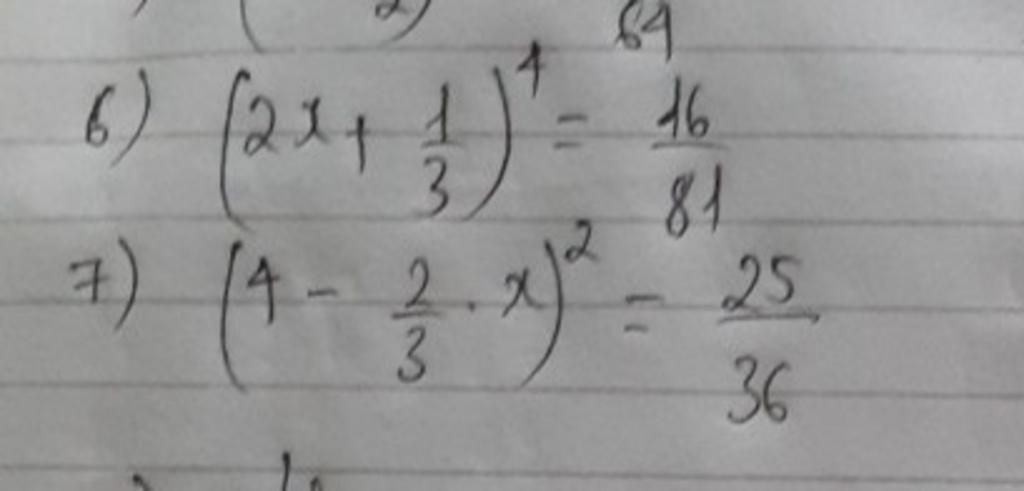 2)
64
6) (2x + 1/3)^4 = 16/81
7) (4 - 2/3 . x)^2 = 25/36